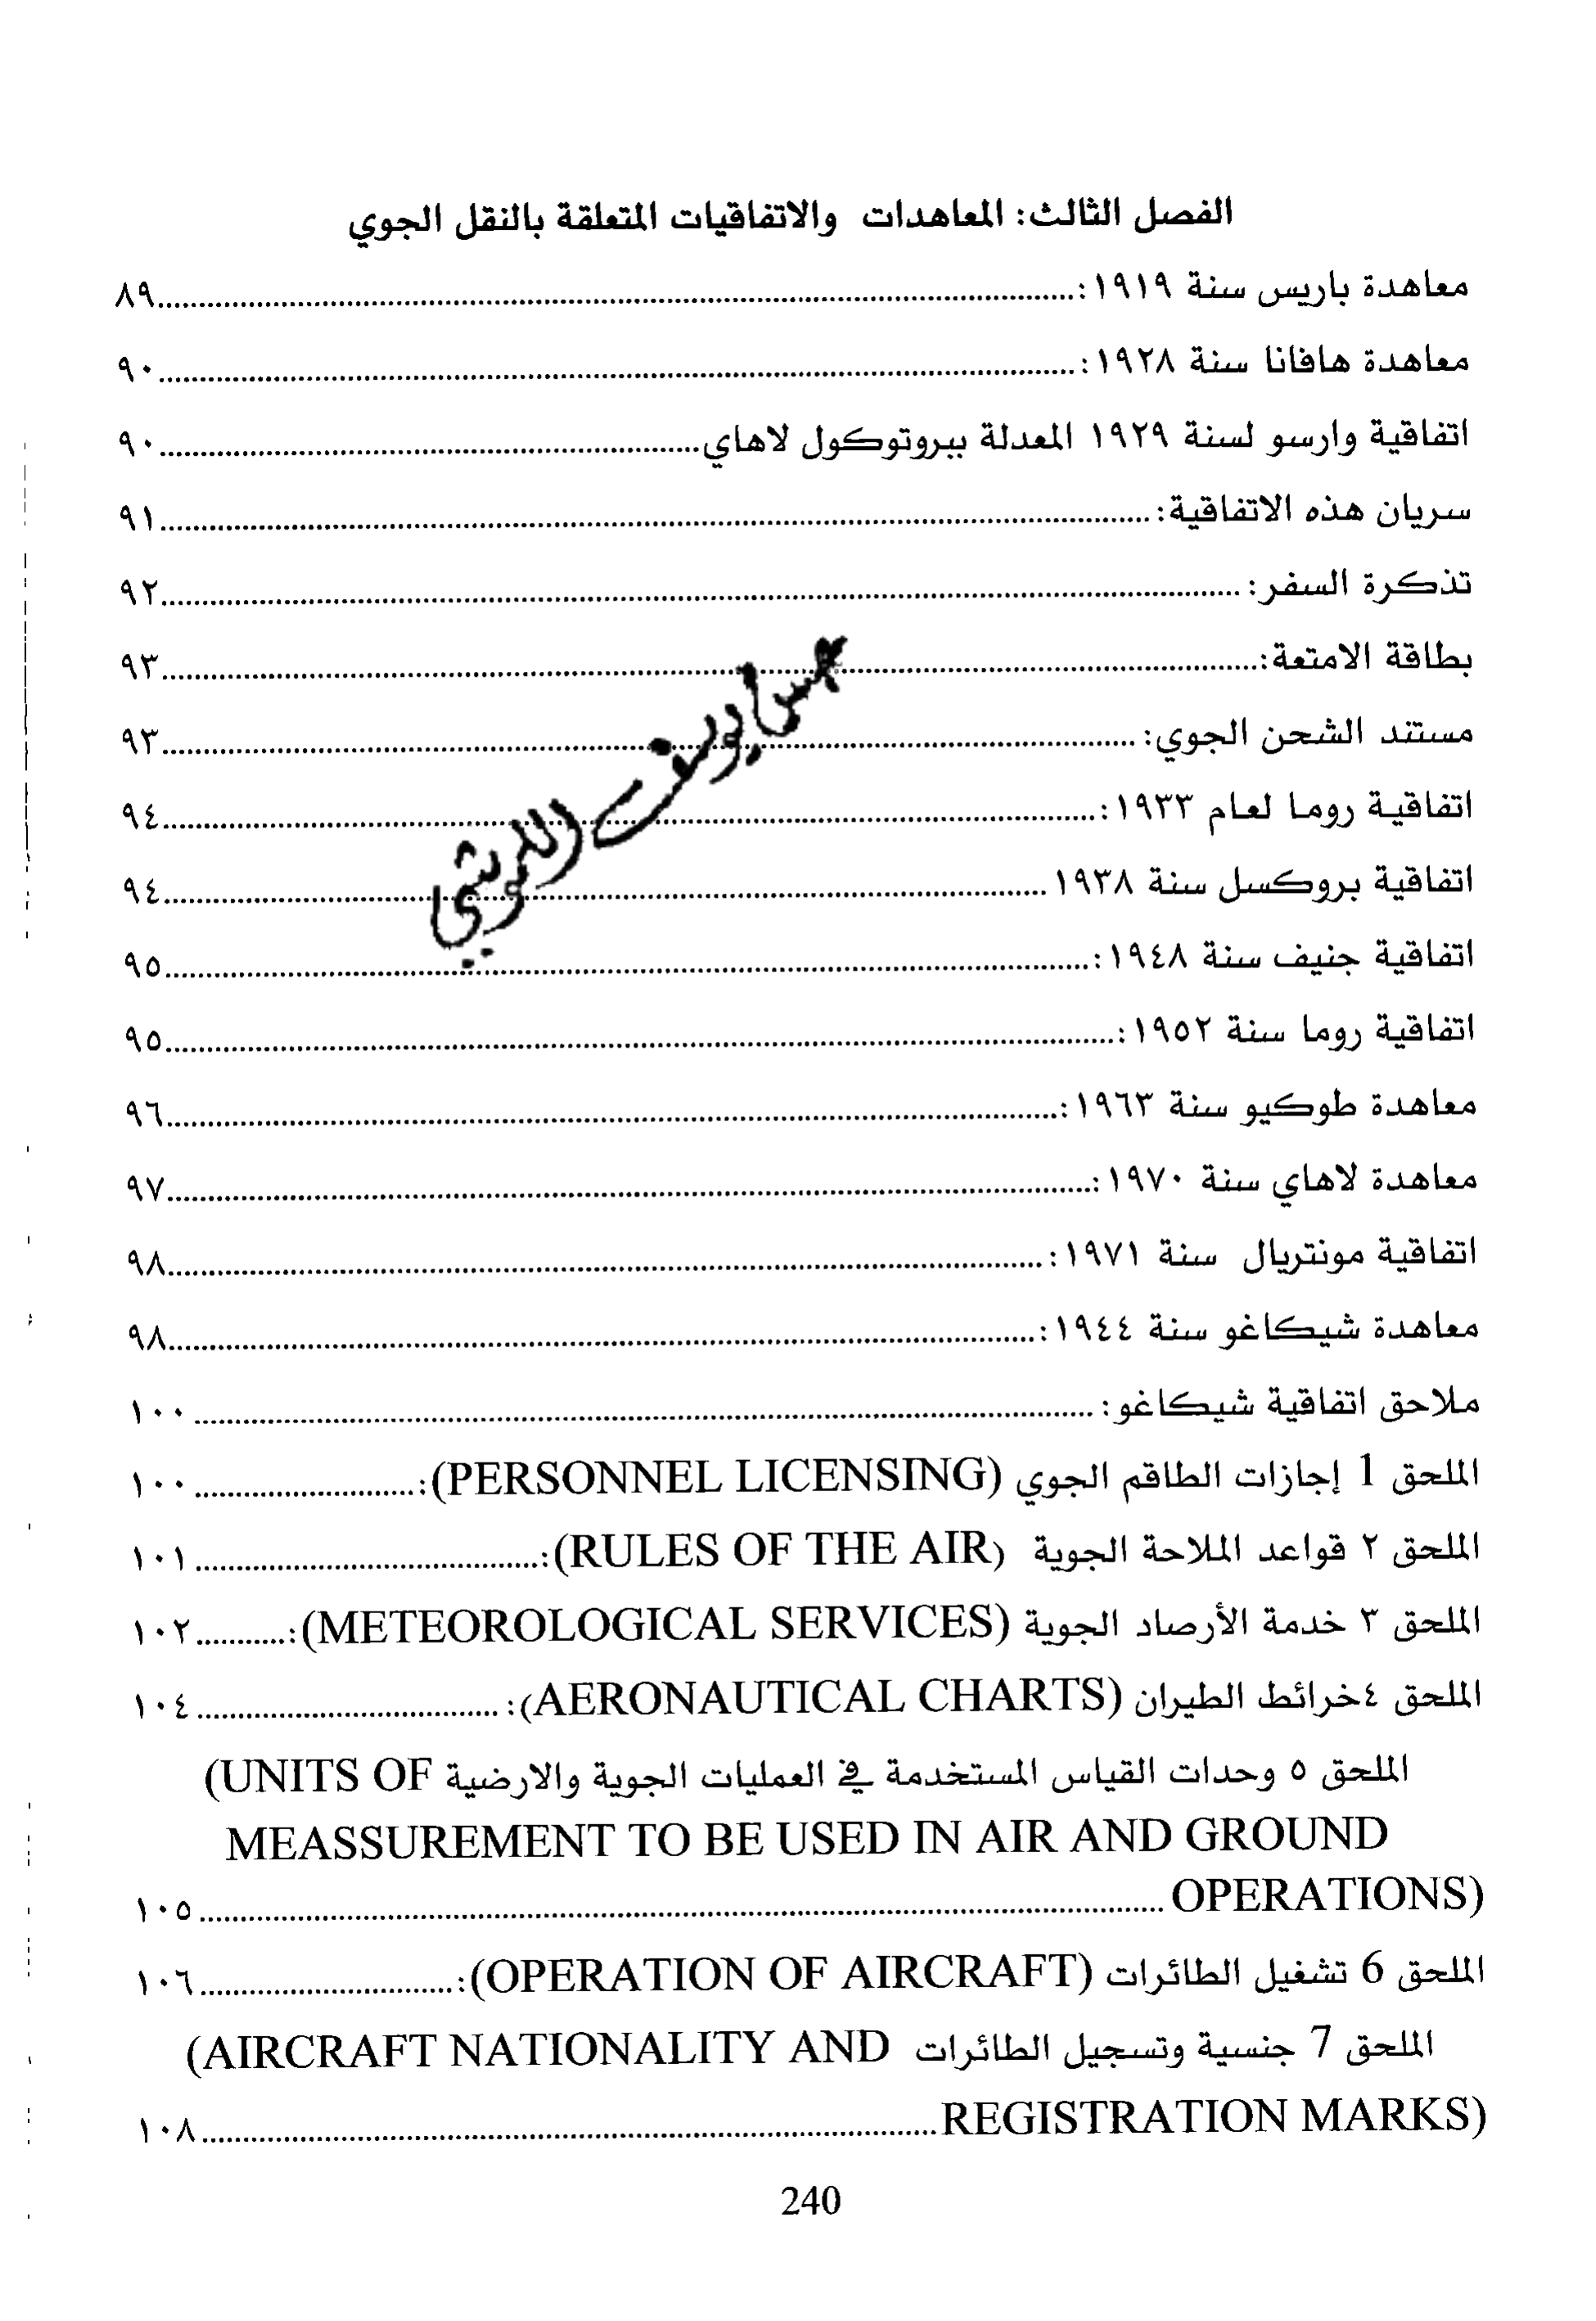 الفصل الثالث: المعاهدات والاتفاقيات المتعلقة بالنقل الجوي
معاهدة باريس سنة ١٩١٩:..........٨٩
معاهدة هافانا سنة ١٩٢٨:..........٩٠
اتفاقية وارسو لسنة ١٩٢٩ المعدلة ببروتوكول لاهاي..........٩٠
سريان هذه الاتفاقية:..........٩١
تذكرة السفر:..........٩٢
بطاقة الامتعة:..........٩٣
مستند الشحن الجوي:..........٩٣
اتفاقية روما لعام ١٩٣٣:..........٩٤
اتفاقية بروكسل سنة ١٩٣٨..........٩٤
اتفاقية جنيف سنة ١٩٤٨:..........٩٥
اتفاقية روما سنة ١٩٥٢:..........٩٥
معاهدة طوكيو سنة ١٩٦٣:..........٩٦
معاهدة لاهاي سنة ١٩٧٠:..........٩٧
اتفاقية مونتريال سنة ١٩٧١:..........٩٨
معاهدة شيكاغو سنة ١٩٤٤:..........٩٨
ملاحق اتفاقية شيكاغو:..........١٠٠
الملحق 1 إجازات الطاقم الجوي (PERSONNEL LICENSING):..........١٠٠
الملحق ٢ قواعد الملاحة الجوية (RULES OF THE AIR):..........١٠١
الملحق ٣ خدمة الأرصاد الجوية (METEOROLOGICAL SERVICES):..........١٠٢
الملحق ٤خرائط الطيران (AERONAUTICAL CHARTS):..........١٠٤
الملحق ٥ وحدات القياس المستخدمة في العمليات الجوية والارضية (UNITS OF
MEASSUREMENT TO BE USED IN AIR AND GROUND
OPERATIONS)..........١٠٥
الملحق 6 تشغيل الطائرات (OPERATION OF AIRCRAFT):..........١٠٦
الملحق 7 جنسية وتسجيل الطائرات (AIRCRAFT NATIONALITY AND
REGISTRATION MARKS)..........١٠٨
240